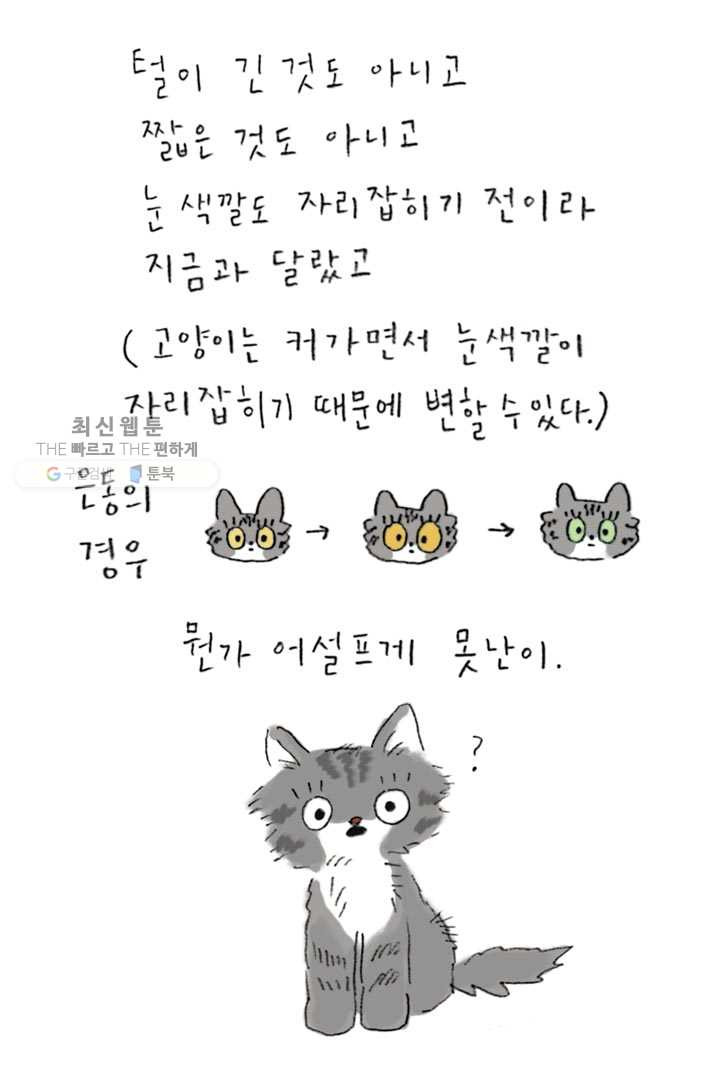 털이 긴 것도 아니고
짧은 것도 아니고
눈 색깔도 자리잡히기 전이라
지금과 달랐고
(고양이는 커가면서 눈색깔이
자리잡히기 때문에 변할 수 있다.)
최신웹툰
THE 빠르고 THE 편하게
구글검색 툰북
은동의
경우
뭔가 어설프게 못난이.
?